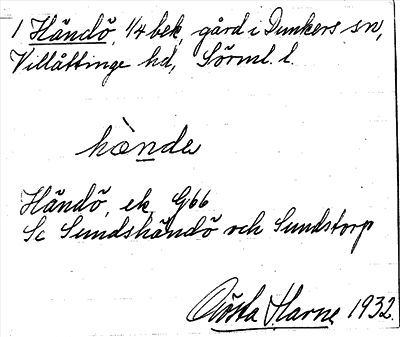 1 Händö, 1/4 bek. gård i Dunkers sn,
Villåttinge hd, Sörml. l.
hæ̀nde
Händö, ek. G66
Se Sundshändö och Sundstorp
Gösta Harne 1932.